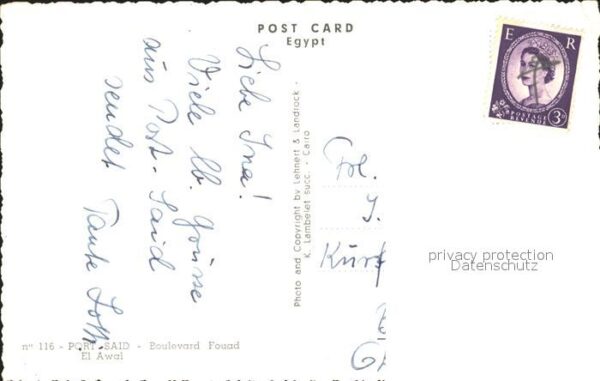 POST CARD
Egypt
E R
POSTAGE
REVENUE
3D
Liebe Ina!
Viele lb. Grüsse
aus Port-Said
sendet Tante Lotti.
Photo and Copyright by Lehnert & Landrock -
K. Lambelet succ. - Cairo
Frl.
J.
Kurf
privacy protection
Datenschutz
nº 116 - PORT SAID - Boulevard Fouad
El Awal